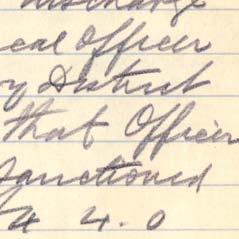 discharge
cal Officer
y District
that Officer
Sanctioned
4. 0